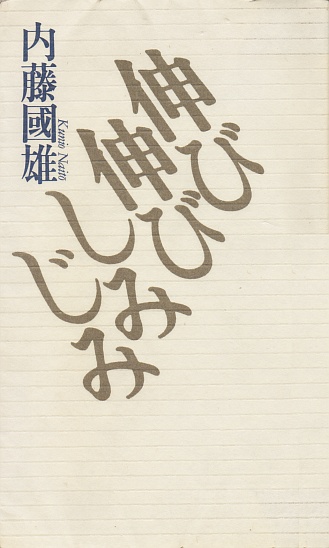 伸び
伸び
しみ
じみ
内藤國雄
Kunio Naitō